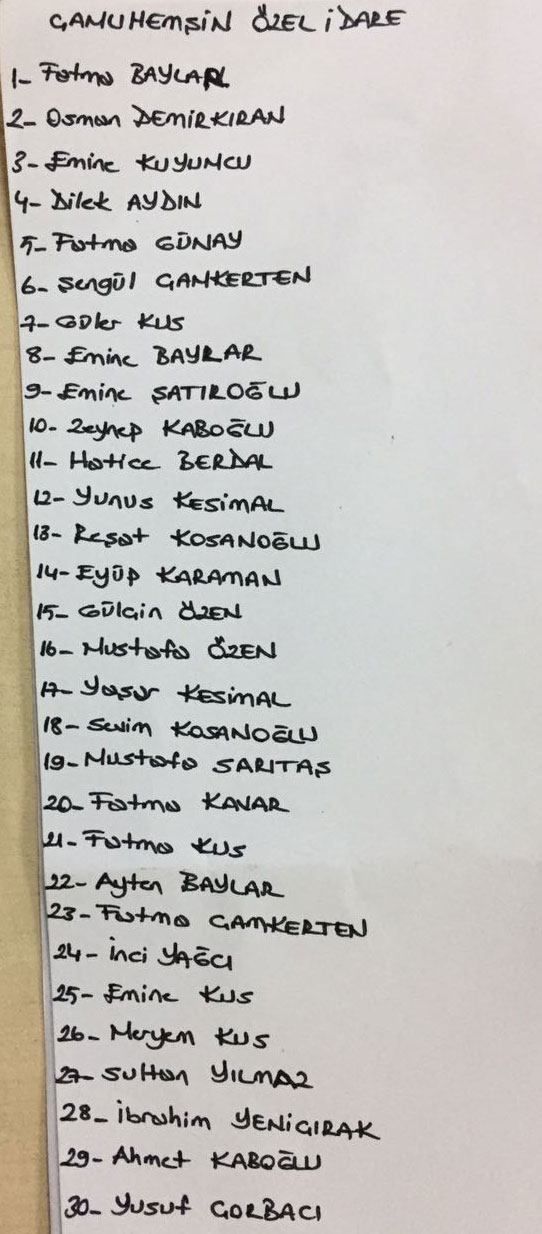 ÇAMLIHEMŞİN ÖZEL İDARE
1- Fatma BAYLAR
2- Osman DEMİRKIRAN
3- Emine KUYUMCU
4- Dilek AYDIN
5- Fatma GÜNAY
6- Şengül ÇAMKERTEN
7- Güler KUS
8- Emine BAYLAR
9- Emine ŞATIROĞLU
10- Zeynep KABOĞLU
11- Hatice BERDAL
12- Yunus KESİMAL
13- Reşat KOSANOĞLU
14- Eyüp KARAMAN
15- Gülçin ÖZEN
16- Mustafa ÖZEN
17- Yaşar KESİMAL
18- Sevim KOSANOĞLU
19- Mustafa SARITAŞ
20- Fatma KAVAR
21- Fatma KUS
22- Ayten BAYLAR
23- Fatma ÇAMKERTEN
24- İnci YAĞCI
25- Emine KUS
26- Meryem KUS
27- Sultan YILMAZ
28- İbrahim YENİÇIRAK
29- Ahmet KABOĞLU
30- Yusuf ÇORBACI